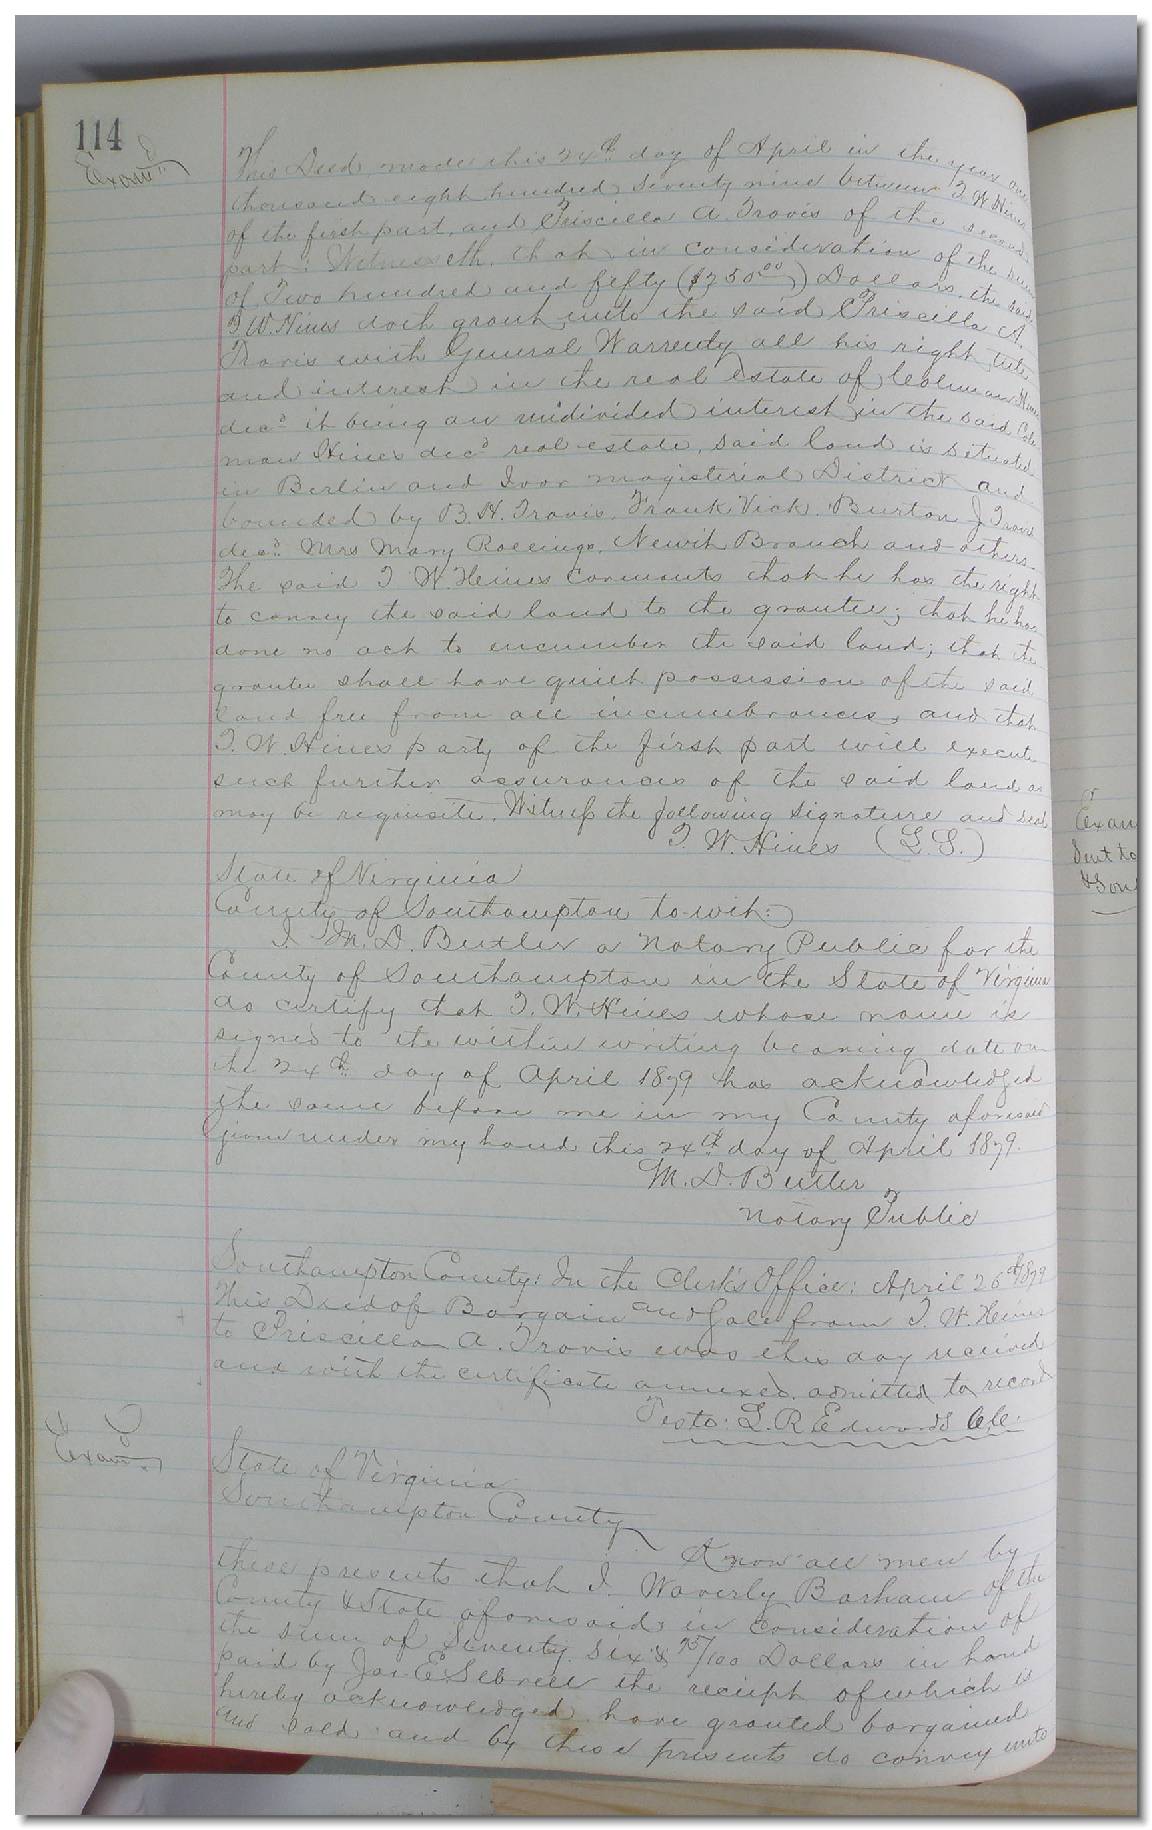 114
Exam.d
This Deed, made this 24th day of April in the year one
thousand eight hundred seventy nine between T. W. Hines
of the first part, and Priscilla A Travis of the second
part: Witnesseth, that in consideration of the sum
of Two hundred and fifty ($250.00) Dollars, the said
T. W. Hines doth grant unto the said Priscilla A.
Travis with General Warrenty all his right title
and interest in the real Estate of Colman Hines
decd it being an undivided interest in the said Cole-
man Hines decd real estate, said land is situated
in Berlin and Ivor magisterial District and
bounded by B. H. Travis, Frank Vick, Burton J Travis
decd. Mrs Mary Rollings, Newit Branch and others.
The said T W. Hines Covenants that he has the right
to convey the said land to the grantee; that he has
done no act to encumber the said land; that the
grantee shall have quiet possession of the said
land free from all incumbrances, and that
T. W. Hines party of the first part will execute
such further assurances of the said land as
may be requisite. the following signature and seal
T. W. Hines (L.S.)
State of Virginia
County of Southampton to-wit:
I M. D. Butler a Notary Public for the
County of Southampton in the State of Virginia
do certify that T. W. Hines whose name is
signed to the within writing bearing date on
the 24th day of April 1879 has acknowledged
the same before me in my County aforesaid
given under my hand this 24th day of April 1879.
M. D. Butler
Notary Public
Southampton County: In the Clerk's Office: April 26th 1879
This Deed of Bargain and Sale from T. W. Hines
to Priscilla A. Travis was this day received
and with the certificate annexed admitted to record
Teste: L. R Edwards C.C.
Exam.d
State of Virginia
Southampton County
Know all men by
these presents that I Waverly Barham of the
County & State aforesaid in Consideration of
the sum of Seventy six & 75/100 Dollars in hand
paid by Jas. E. Sebrell the receipt of which is
hereby acknowledged have granted bargained
and sold and by these presents do convey unto
Exam
Sent to
& Son